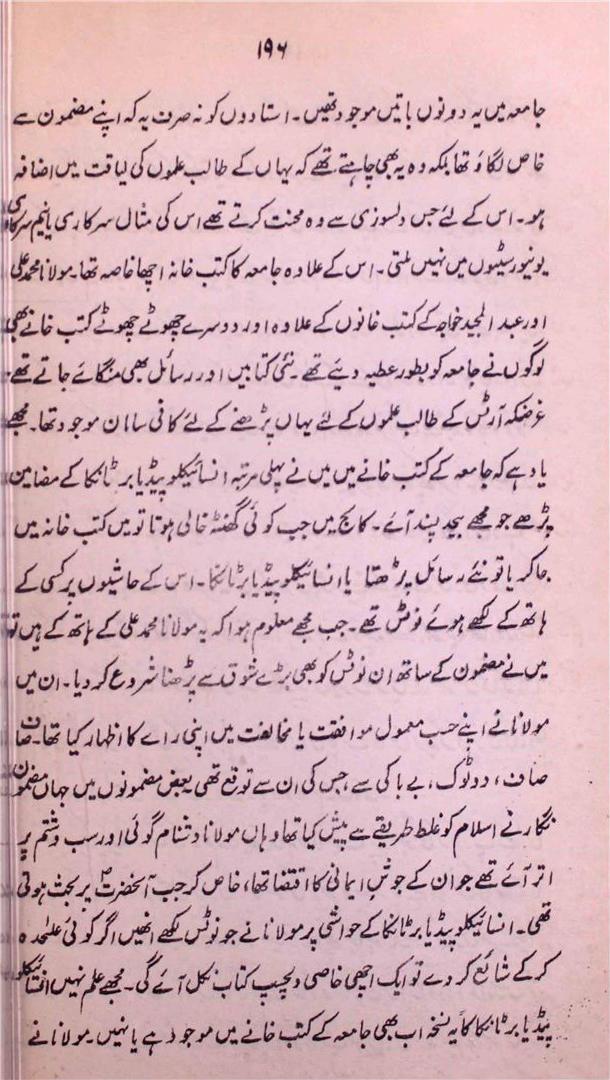 ۱۹۶
جامعہ میں یہ دونوں باتیں موجود تھیں۔ استادوں کو نہ صرف یہ کہ اپنے مضمون سے
خاص لگاؤ تھا بلکہ وہ یہ بھی چاہتے تھے کہ یہاں کے طالب علموں کی لیاقت میں اضافہ
ہو۔ اس کے لئے جس دلسوزی سے وہ محنت کرتے تھے اس کی مثال سرکاری یا نیم سرکاری
یونیورسیٹوں میں نہیں ملتی۔ اس کے علاوہ جامعہ کا کتب خانہ اچھا خاصہ تھا۔ مولانا محمد علی
اور عبد المجید خواجہ کے کتب خانوں کے علاوہ اور دوسرے چھوٹے چھوٹے کتب خانے بھی
لوگوں نے جامعہ کو بطور عطیہ دیئے تھے۔ نئی کتابیں اور رسائل بھی منگائے جاتے تھے۔
غرضکہ آرٹس کے طالب علموں کے لئے یہاں پڑھنے کے لئے کافی سامان موجود تھا۔ مجھے
یاد ہے کہ جامعہ کے کتب خانے میں میں نے پہلی مرتبہ انسائیکلوپیڈیا برٹانکا کے مضامین
پڑھے جو مجھے بیحد پسند آئے۔ کالج میں جب کوئی گھنٹہ خالی ہوتا تو میں کتب خانہ میں
جا کر یا تو نئے رسائل پڑھتا یا انسائیکلوپیڈیا برٹانکا۔ اس کے حاشیوں پر کسی کے
ہاتھ کے لکھے ہوئے نوٹس تھے۔ جب مجھے معلوم ہوا کہ یہ مولانا محمد علی کے ہاتھ کے ہیں تو
میں نے مضمون کے ساتھ ان نوٹس کو بھی بڑے شوق سے پڑھنا شروع کر دیا۔ ان میں
مولانا نے اپنے حسب معمول موافقت یا مخالفت میں اپنی رائے کا اظہار کیا تھا۔ صاف
صاف، دوٹوک، بے باکی سے، جس کی ان سے توقع تھی بعض مضمونوں میں جہاں مضمون
نگار نے اسلام کو غلط طریقے سے پیش کیا تھا وہاں مولانا دشنام گوئی اور سب و شتم پر
اتر آئے تھے جو ان کے جوش ایمانی کا اقتضا تھا، خاص کر جب آنحضرتؐ پر بحث ہوئی
تھی۔ انسائیکلوپیڈیا برٹانکا کے حواشی پر مولانا نے جو نوٹس لکھے انھیں اگر کوئی علٰحدہ
کر کے شائع کر دے تو ایک اچھی خاصی دلچسپ کتاب نکل آئے گی۔ مجھے علم نہیں انسائیکلو
پیڈیا برٹانکا کا یہ نسخہ اب بھی جامعہ کے کتب خانے میں موجود ہے یا نہیں۔ مولانا نے